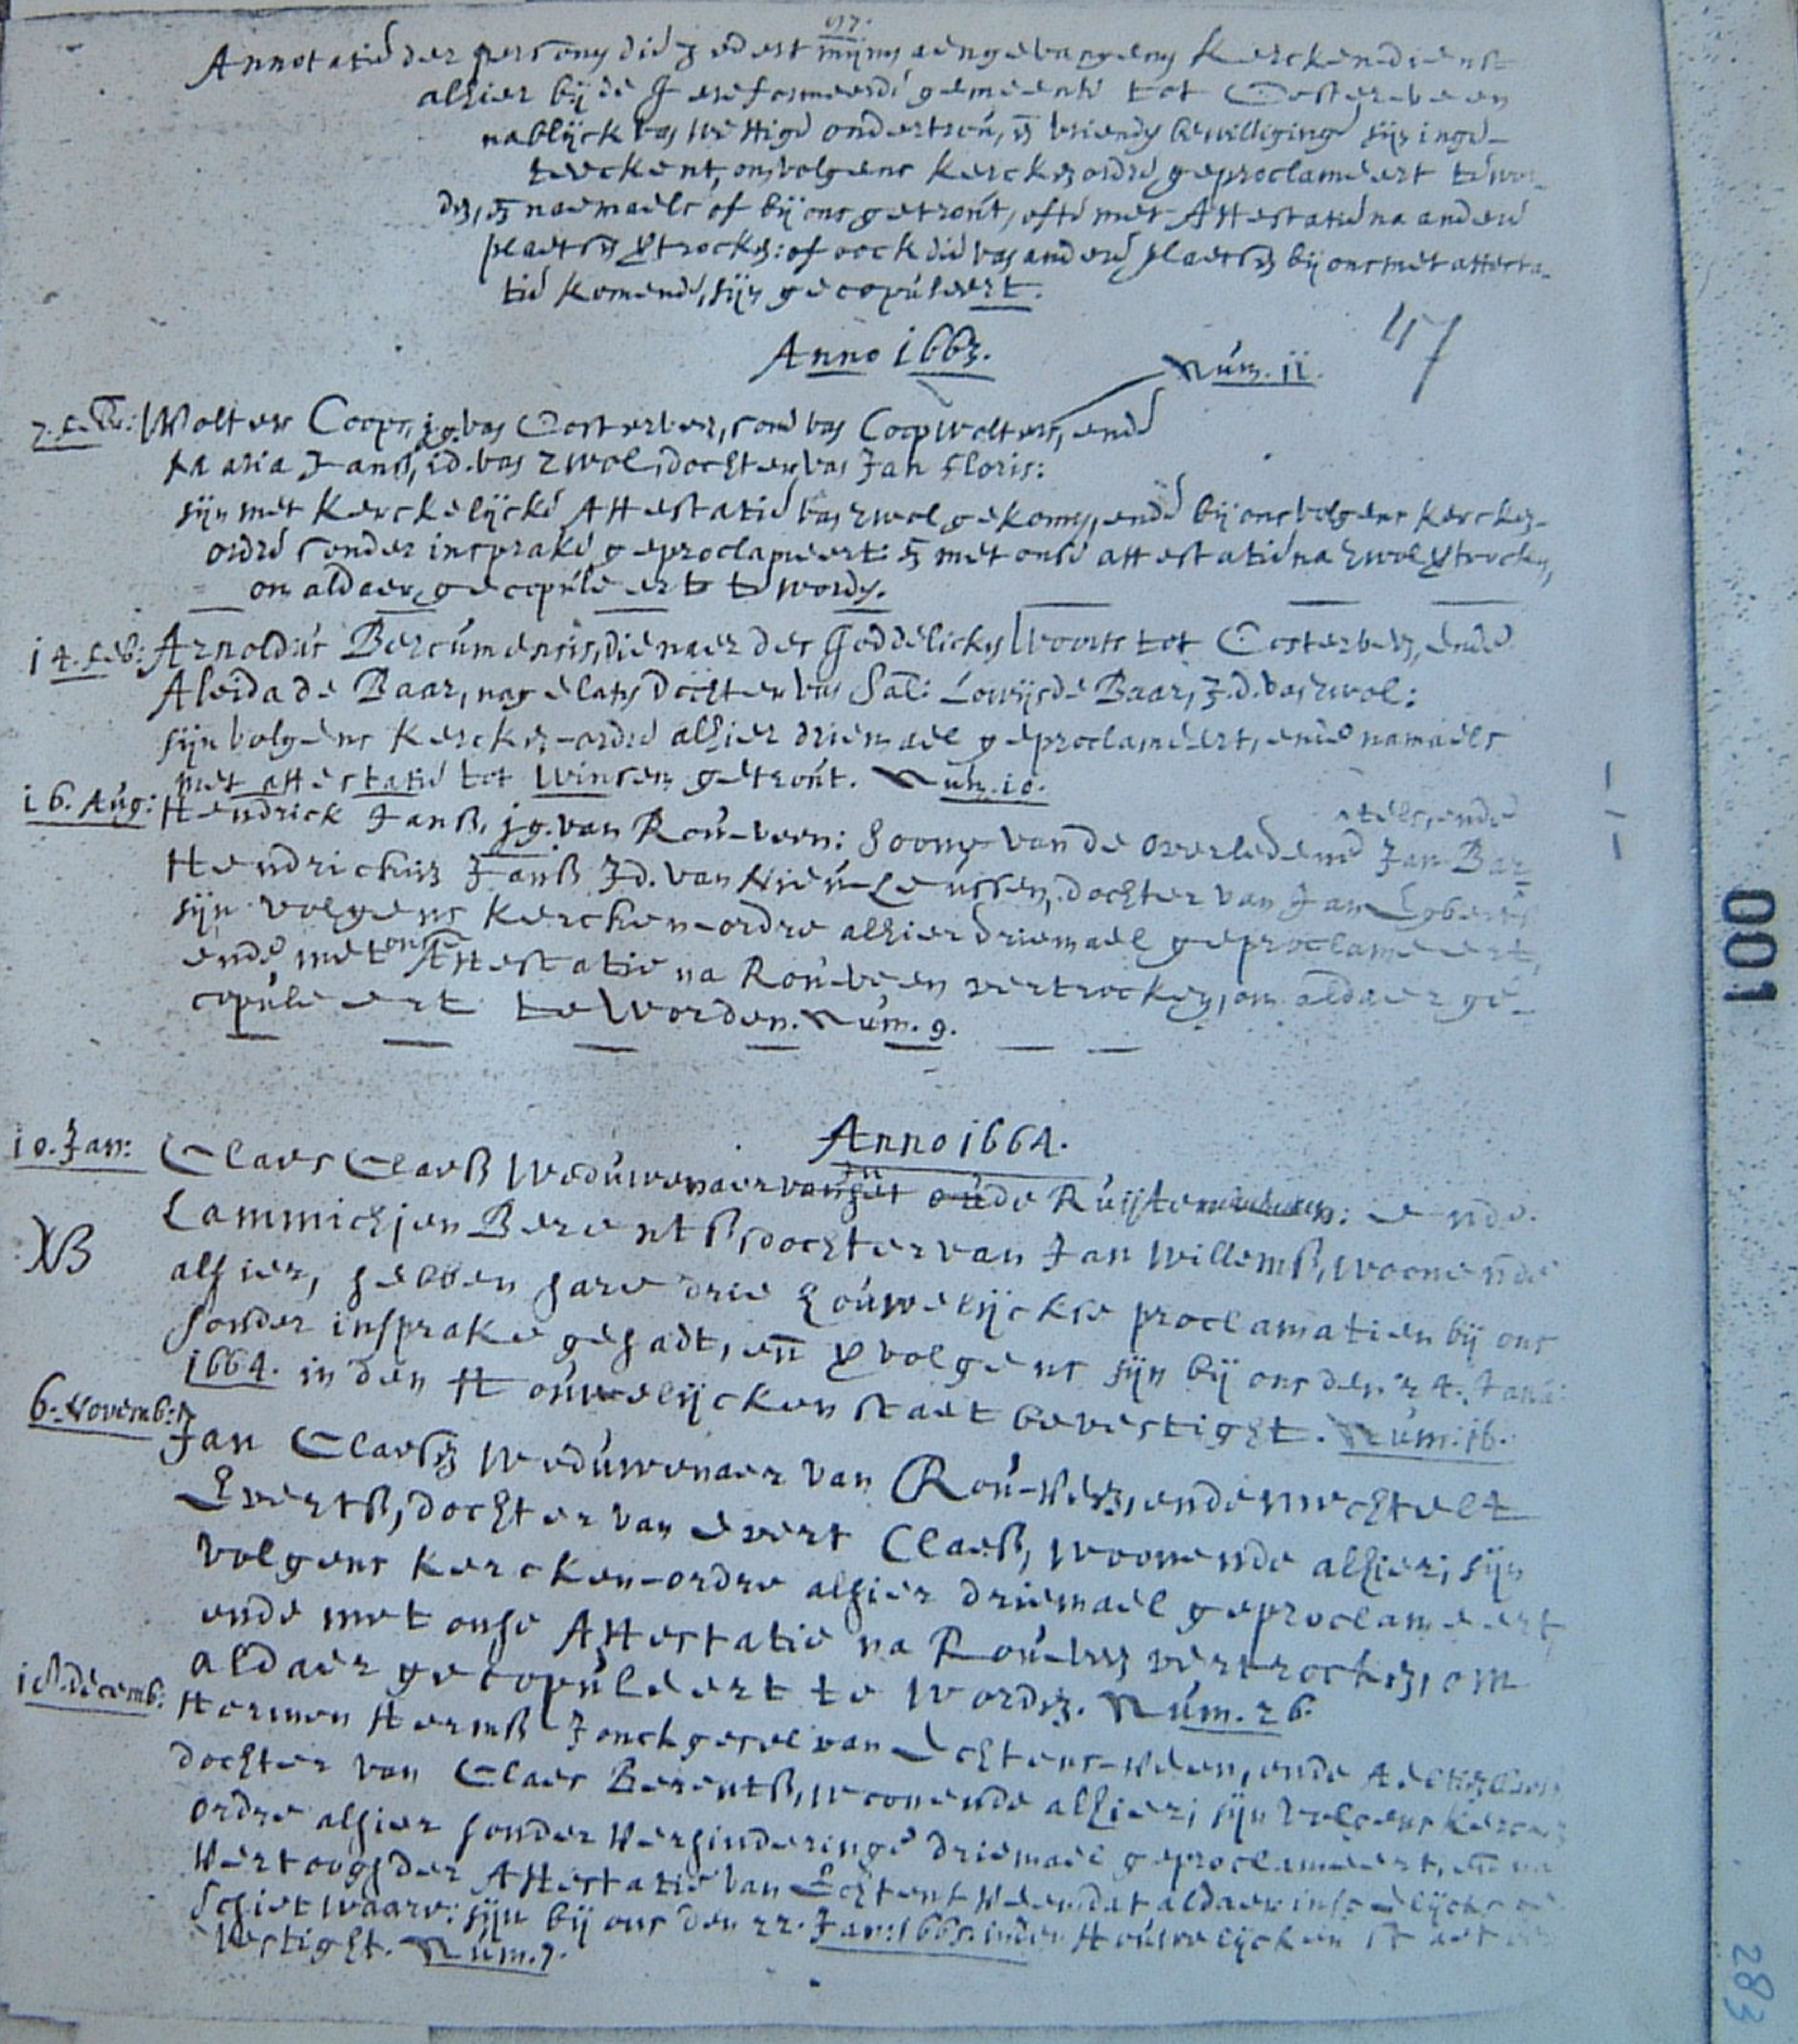 Annotatie der persony die zedert mijnes aengevangens Kerckendienst
alhier bij de Gereformeerde gemeente tot Oosterveen
nablijck van wettige ondertrou, en vriendes bewilliginge sijn inge-
teeckent, om volgens kercken ordre geproclameert te wor-
den, en naemaels of bij ons getrout, ofte met Attestatie na andere
plaetsen vertrocken: of oock die van andere plaetsen bij ons met attesta-
tie komende, sijn gecopuleert.
47
Anno 1663.
Num. 11.
7. Feb: Wolter Coops, j.g. van Oosterveen, sone van Coop Wolters, ende
Maria Janß, j.d. van Zwol, dochter van Jan Floris:
sijn met Kerckelijcke Attestatie van Zwol gekomen, ende bij ons volgens kercken-
ordre sonder insprake geproclameert: en met onse attestatie na Zwol vertrocken,
om aldaer gecopuleert te worden.
14. Feb: Arnoldus Bercumensis, dienaer des Goddelicken Woorts tot Oosterveen, ende
Aleida de Baar, nagelaten dochter van Sal: Lowijs de Baar, J.d. van Zwol:
sijn volgens kercken-ordre alhier driemael geproclameert, ende namaels
met attestatie tot Winsem getrout. Num. 10.
16. Aug: Hendrick Janß, jg. van Rou-veen: Soone van de overledene Jan Bar-
tels, ende
Hendrickien Janß Jd. van Nieu-Leussen, dochter van Jan Egberts
sijn volgens Kercken-ordre alhier driemael geproclameert,
ende met onse Attestatie na Rou-veen vertrocken, om aldaer ge-
copuleert te Worden. Num. 9.
Anno 1664.
10. Jan: Claes Claeß Weduwenaer van oude Ruijten: ende
Lammichjen Berentß, dochter van Jan Willemß, woonende
alhier, hebben hare drie houwelijckse proclamatien bij ons
sonder insprake gehadt, en vervolgens sijn bij ons den 24. Janu:
1664. in den Houwelijcken staet bevestight. Num. 16.
6. Novemb: Jan Claeßen Weduwenaer van Rou-Veen, ende Mechtelt
Evertß, dochter van Evert Claeß, woonende alhier; sijn
volgens Kercken-ordre alhier driemael geproclameert,
ende met onse Attestatie na Rou-veen vertrocken, om
aldaer gecopuleert te worden. Num. 26.
18. decemb: Hermen Hermß Jonckgesel van Echtens-Veen, ende
dochter van Claes Berentß, woonende alhier; sijn volgens Kercken
ordre alhier sonder Verhinderinge driemael geproclameert, en na
Vertoogh der Attestatie van Echtens Veen dat aldaer insgelijcks ge
schiet waare: sijn bij ons den 22. Jan: 1665. in den Houwelijcken staet be
Vestight. Num. 7.
001
283